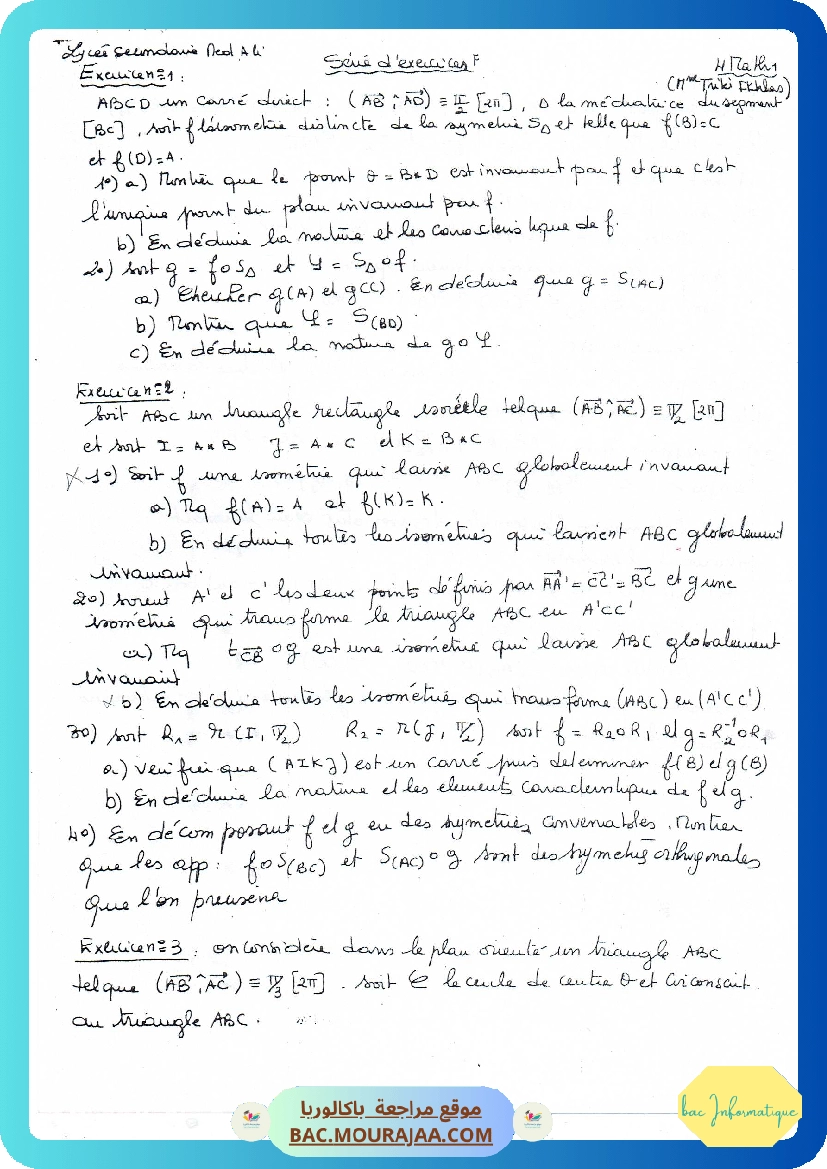 Lycée secondaire Med Ali
Série d'exercices
4 Maths
(Mme Triki Ikhlas)
Exercice n°1 :
ABCD un carré direct : (AB ^ AD) ≡ π/2 [2π], Δ la médiatrice du segment
[BC], soit f l'isométrie distincte de la symétrie SΔ et telle que f(B)=C
et f(D)=A.
1°) a) Montrer que le point O = B*D est invariant par f et que c'est
l'unique point du plan invariant par f.
b) En déduire la nature et les caractéristique de f.
2°) soit g = f∘SΔ et φ = SΔ∘f.
a) Chercher g(A) et g(C). En déduire que g = S(AC)
b) Montrer que φ = S(BD).
c) En déduire la nature de g∘φ.
Exercice n°2 :
Soit ABC un triangle rectangle isocèle tel que (AB ^ AC) ≡ π/2 [2π]
et soit I = A*B J = A*C et K = B*C
1°) Soit f une isométrie qui laisse ABC globalement invariant
a) Mq f(A)=A et f(K)=K.
b) En déduire toutes les isométries qui laissent ABC globalement
invariant.
2°) soient A' et C' les deux points définis par AA' = CC' = BC et g une
isométrie qui transforme le triangle ABC en A'CC'
a) Mq t CB ∘ g est une isométrie qui laisse ABC globalement
invariant
b) En déduire toutes les isométries qui transforme (ABC) en (A'CC')
3°) soit R1 = r(I, π/2) R2 = r(J, π/2) soit f = R2∘R1 et g = R2⁻¹∘R1
a) Vérifier que (AIKJ) est un carré puis déterminer f(B) et g(B)
b) En déduire la nature et les éléments caractéristique de f et g.
4°) En décomposant f et g en des symétries convenables, Montrer
que les app : f∘S(BC) et S(AC)∘g sont des symétries orthogonales
que l'on précisera
Exercice n°3 : on considère dans le plan orienté un triangle ABC
tel que (AB ^ AC) ≡ π/3 [2π]. soit C le cercle de centre O et circonscrit
au triangle ABC.
موقع مراجعة باكالوريا
BAC.MOURAJAA.COM
bac Informatique